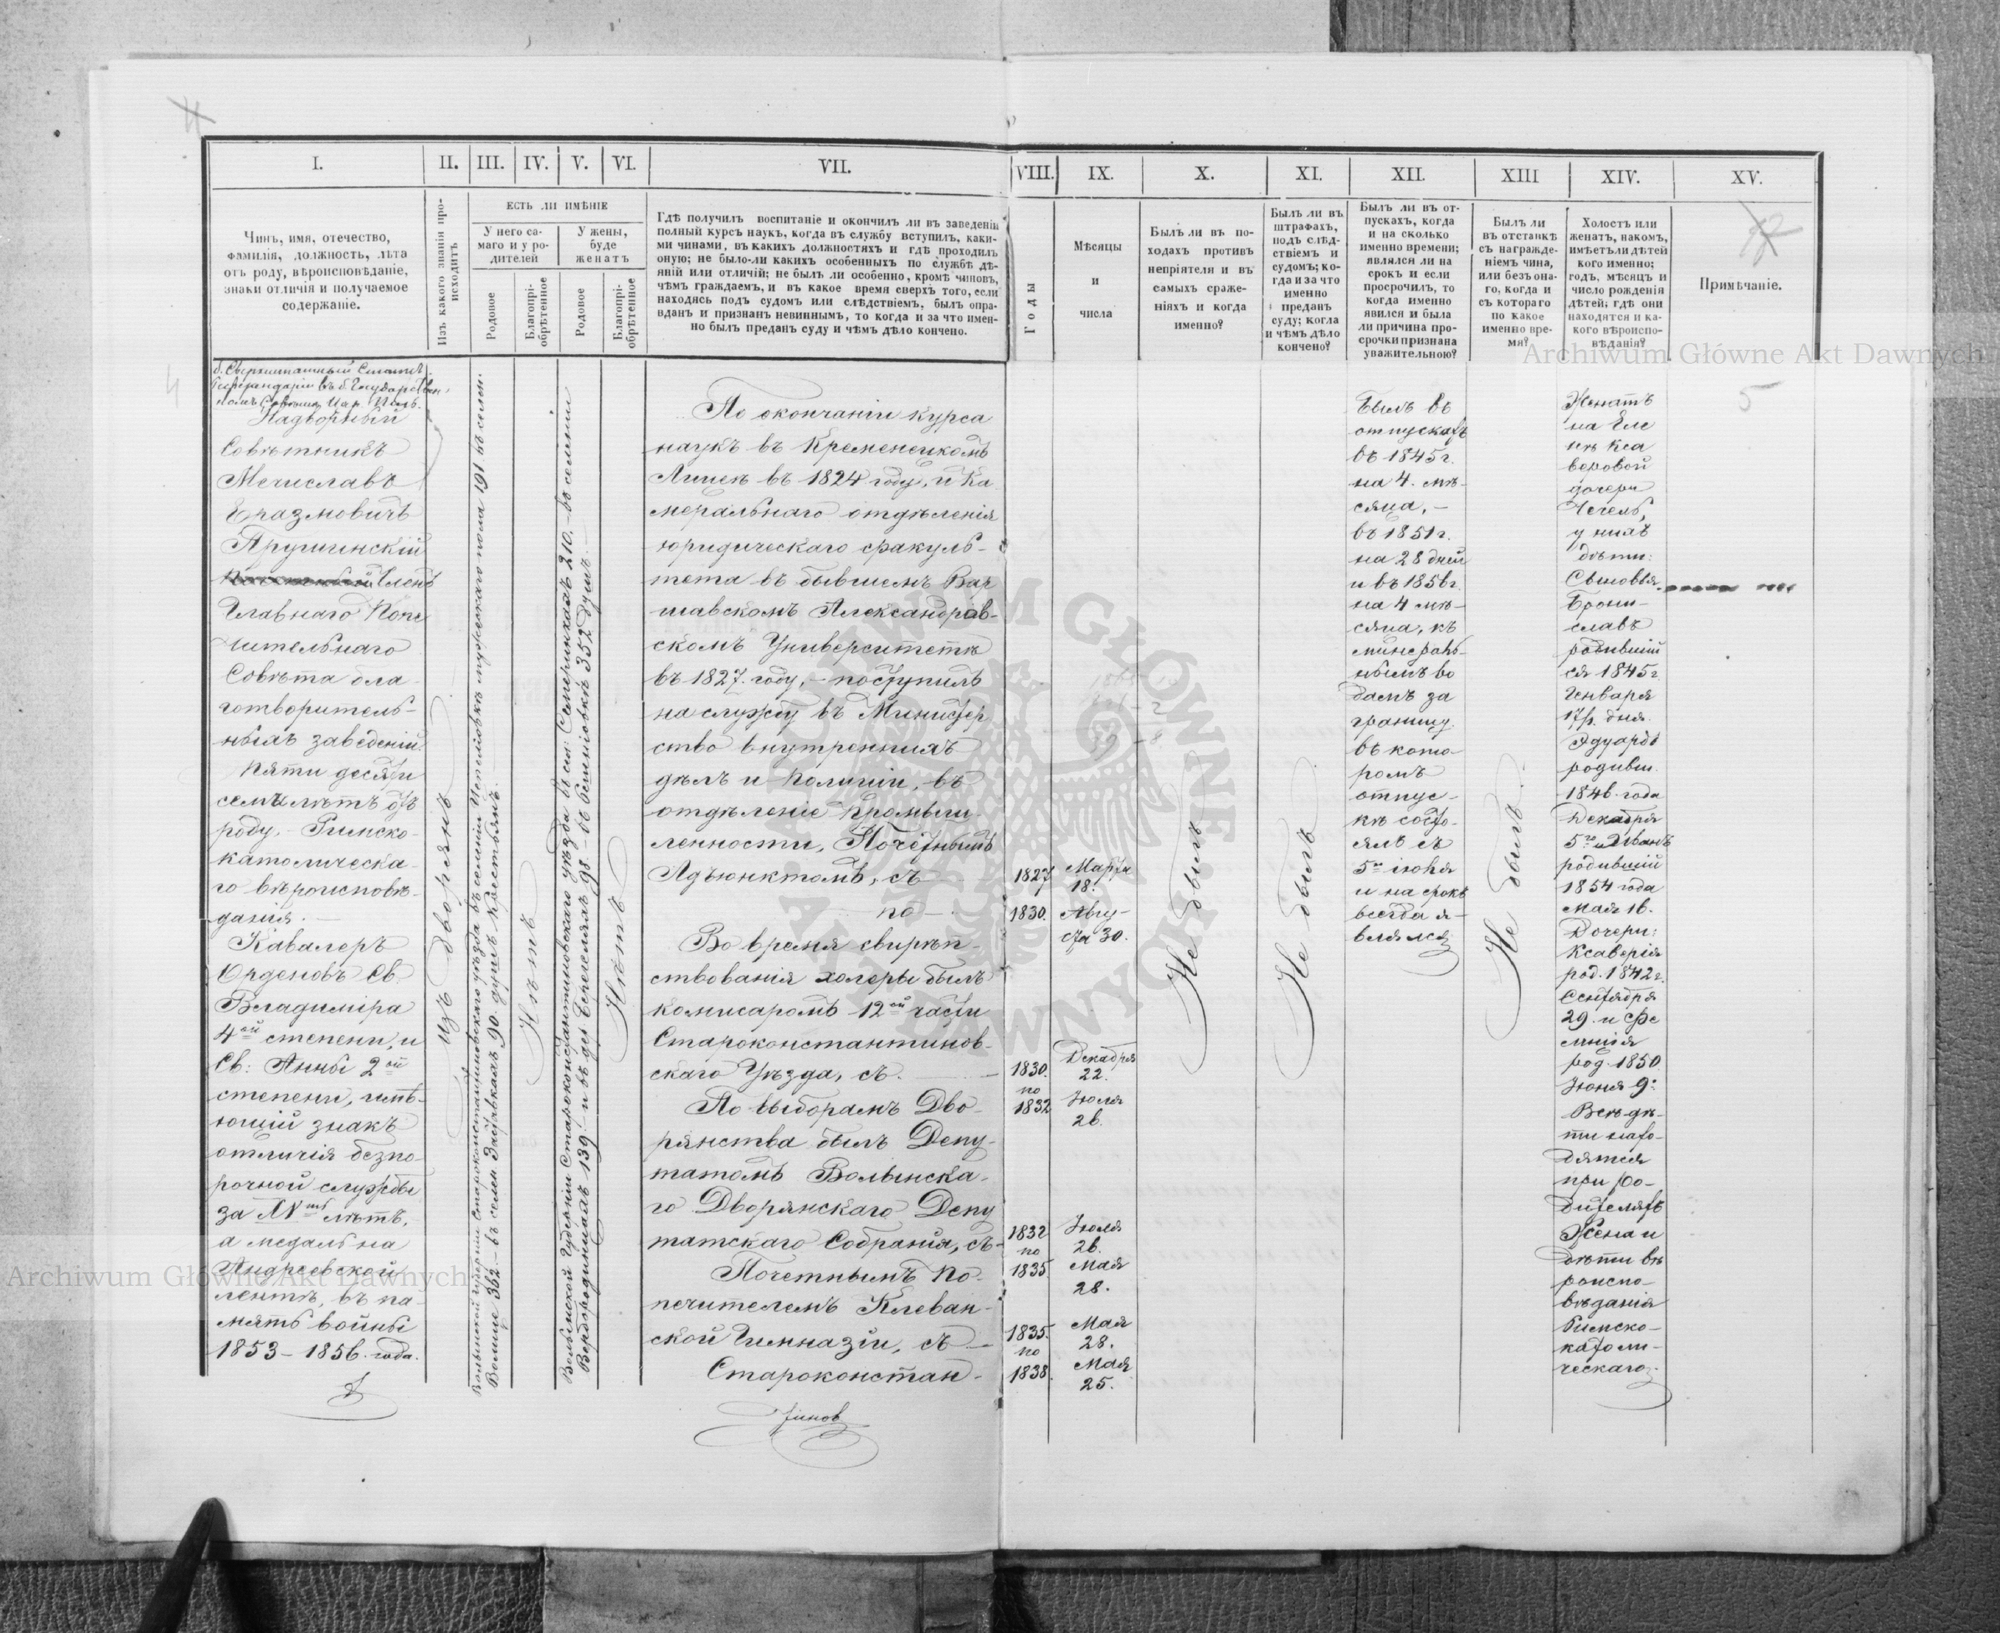 I.
II.
III.
IV.
V.
VI.
VII.
VIII.
IX.
X.
XI.
XII.
XIII
XIV.
XV.
Чинъ, имя, отечество,
фамилія, должность, лѣта
отъ роду, вѣроисповѣданіе,
знаки отличія и получаемое
содержаніе.
Изъ какого званія про-
исходитъ
ЕСТЬ ЛИ ИМѢНІЕ
У него са-
маго и у ро-
дителей
У жены,
буде
женатъ
Родовое
Благопрі-
обрѣтенное
Родовое
Благопрі-
обрѣтенное
Гдѣ получилъ воспитаніе и окончилъ ли въ заведеніи
полный курсъ наукъ, когда въ службу вступилъ, каки-
ми чинами, въ какихъ должностяхъ и гдѣ проходилъ
оную; не было-ли какихъ особенныхъ по службѣ дѣ-
яній или отличій; не былъ ли особенно, кромѣ чиновъ,
чѣмъ граждаемъ, и въ какое время сверхъ того, если
находясь подъ судомъ или слѣдствіемъ, былъ опра-
вданъ и признанъ невиннымъ, то когда и за что имен-
но былъ преданъ суду и чѣмъ дѣло кончено.
Годы
Мѣсяцы
и
числа
Былъ ли въ по-
ходахъ противъ
непріятеля и въ
самыхъ сраже-
ніяхъ и когда
именно?
Былъ ли въ
штрафахъ,
подъ слѣд-
ствіемъ и
судомъ; ко-
гда и за что
именно
преданъ
суду; когда
и чѣмъ дѣло
кончено?
Былъ ли въ от-
пускахъ, когда
и на сколько
именно времени;
являлся ли на
срокъ и если
просрочилъ, то
когда именно
явился и была
ли причина про-
срочки признана
уважительною?
Былъ ли
въ отставкѣ
съ награжде-
ніемъ чина,
или безъ она-
го, когда и
съ котораго
по какое
именно вре-
мя?
Холостъ или
женатъ, накомъ,
имѣетъ ли дѣтей
кого именно;
годъ, мѣсяцъ и
число рожденія
дѣтей; гдѣ они
находятся и ка-
кого вѣроиспо-
вѣданія?
Примѣчаніе.
б. Сверхштатный Статсъ
Референдарій въ б. Государствен
номъ Совѣтѣ Цар. Поль.
Надворный
Совѣтникъ
Мечиславъ
Еразмовичъ
Пружинскій
Членъ
Главнаго Попе
чительнаго
Совѣта бла-
готворитель-
ныхъ заведеній.
Пяти десяти
семи лѣтъ отъ
роду. Римско-
католическа-
го вѣроисповѣ-
данія. —
Кавалеръ
Орденовъ Св.
Владиміра
4ой степени, и
Св: Анны 2ой
степени, имѣ-
ющій знакъ
отличія безпо-
рочной службы
за XV лѣтъ,
а медаль на
Андреевской
лентѣ, въ па-
мять войны
1853 — 1856 года.
Изъ дворянъ
Волынской Губерніи Староконстантиновскаго уѣзда въ селеніи мужескаго пола 191 въ селен.
352 — въ селен 90. душъ Крестьянъ.
Нѣтъ
Волынской Губерніи Староконстантиновскаго уѣзда въ сел: 210. — въ селеніи
139. — и въ дер 98 — въ 352 душъ. —
Нѣтъ
По окончаніи курса
наукъ въ Кременецкомъ
Лицеѣ въ 1824 году, и Ка
меральнаго отдѣленія
юридическаго факуль-
тета въ бывшемъ Вар
шавскомъ Александров-
скомъ Университетѣ
въ 1827. году, — поступилъ
на службу въ Министер
ство внутреннихъ
дѣлъ и Полиціи, въ
отдѣленіе Промыш
ленности, Почетнымъ
Адъюнктомъ, съ
по —
Во время свирѣп-
ствованія холеры былъ
комисаромъ 12ой части
Староконстантинов-
скаго Уѣзда, съ. —
По выборамъ Дво-
рянства былъ Депу-
татомъ Волынска-
го Дворянскаго Депу
татскаго Собранія, съ-
Почетнымъ По-
печителемъ Клеван-
ской Гимназіи, съ —
Староконстан-
1827
1830.
1830.
по
1832
1832
по
1835
1835.
по
1838.
Марта
18.
Авгу-
ста 30.
Декабря
22.
Іюля
26.
Іюля
26.
Мая
28.
Мая
28.
Мая
25.
Не былъ
Не былъ
Былъ въ
отпускахъ
въ 1845 г.
на 4. мѣ-
сяца, —
въ 1851 г.
на 28 дней
и въ 1856 г.
на 4 мѣ-
сяца, къ
минераль-
нымъ во
дамъ за
границу.
въ кото-
ромъ
отпус-
кѣ состо-
ялъ съ
5го іюня
и на срокъ
всегда я-
влялся
Не былъ.
Женатъ
на Еле
нѣ Кса
веровой
дочери
у нихъ
дѣти:
Сыновья
Брони-
славъ
родившій
ся 1845 г
Января
17/2. дня.
Эдуардъ
родивш.
1846. года
Декабря
5го и Иванъ
родившій
1854 года
Мая 16.
Дочери:
Ксаверія
род. 1842 г.
Сентября
29. и Фе
лиція
род. 1850
Іюня 9.
Всѣ дѣ-
ти нахо-
дятся
при ро-
дителяхъ
Жена и
дѣти вѣ
роиспо-
вѣданія
Римско-
католи-
ческаго.
5
4
Archiwum Główne Akt Dawnych
Archiwum Główne Akt Dawnych
ARCHIWUM GŁÓWNE AKT DAWNYCH